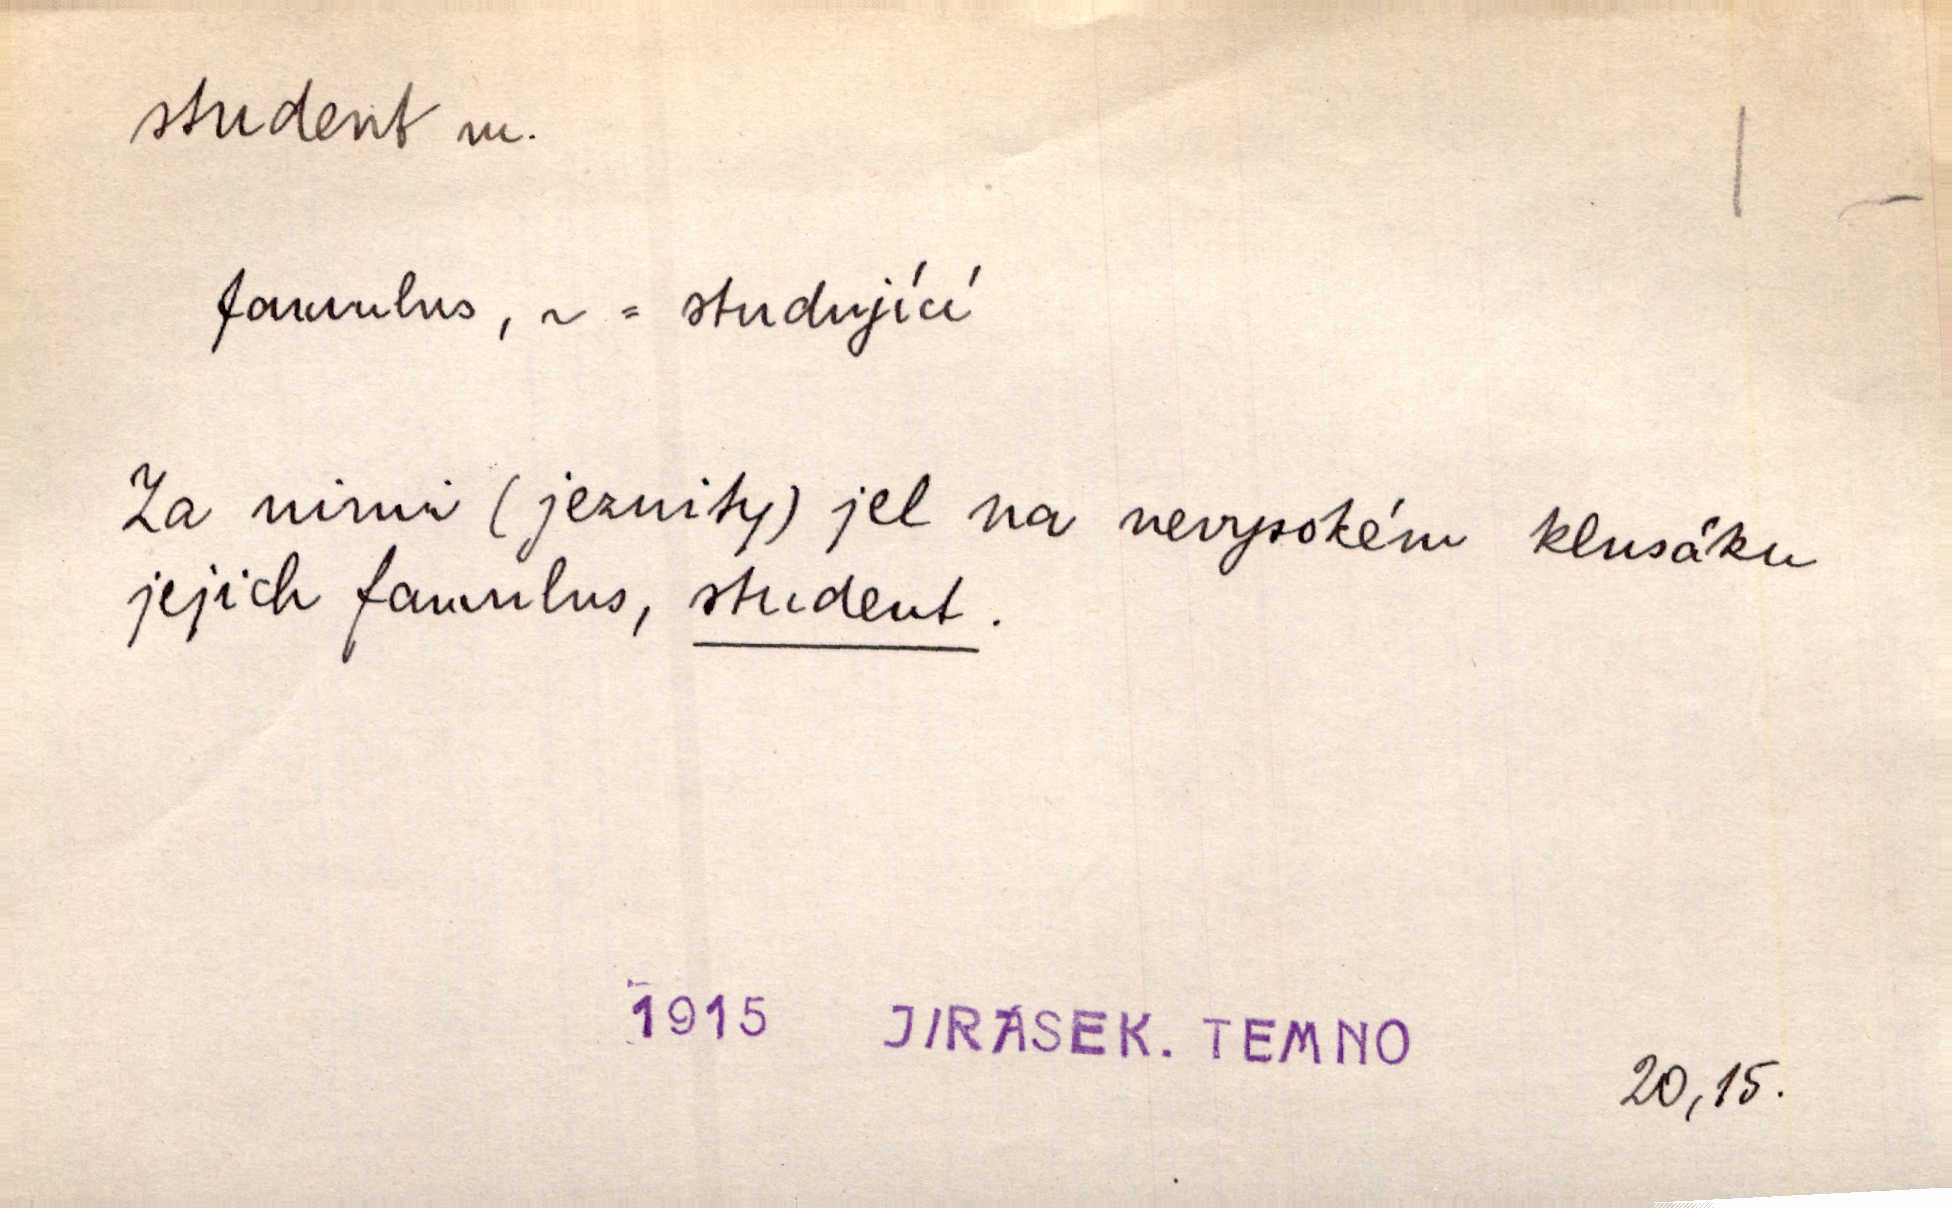 student m.
famulus, ~ = studující
Za nimi (jezuity) jel na nevysokém klusáku
jejich famulus, student.
1915 JIRÁSEK. TEMNO
20,15.